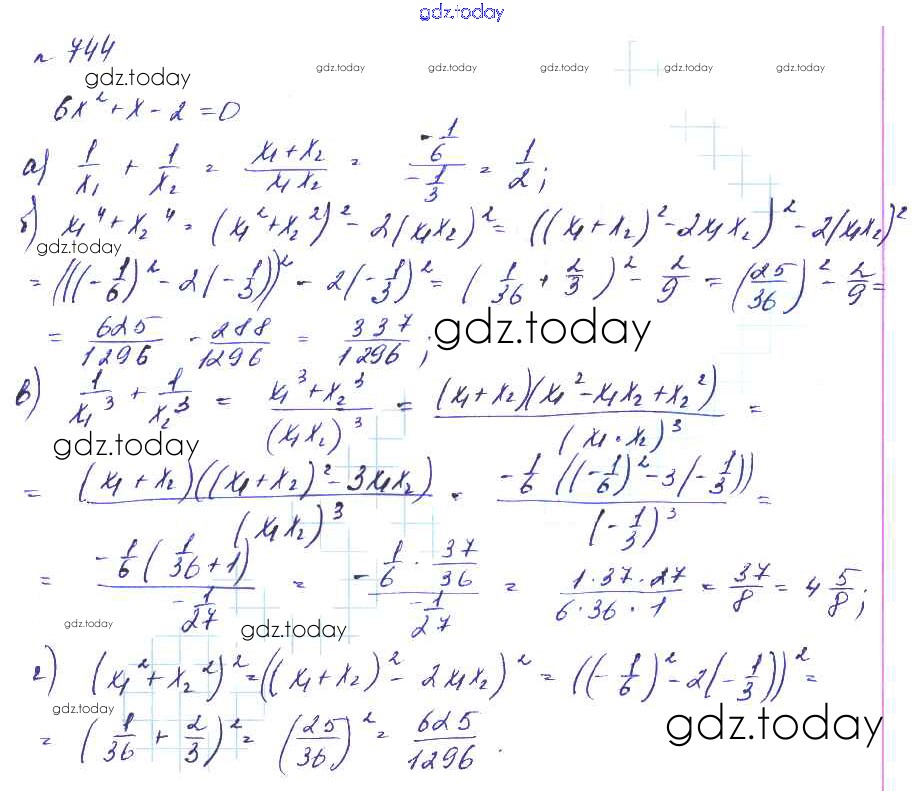 gdz.today
n 744
gdz.today gdz.today gdz.today gdz.today gdz.today gdz.today
6x² + x - 2 = 0
а) 1/x₁ + 1/x₂ = (x₁ + x₂)/(x₁x₂) = (-1/6)/(-1/3) = 1/2;
б) x₁⁴ + x₂⁴ = (x₁² + x₂²)² - 2(x₁x₂)² = ((x₁ + x₂)² - 2x₁x₂)² - 2(x₁x₂)²
gdz.today
= (((-1/6)² - 2(-1/3))² - 2(-1/3)² = (1/36 + 2/3)² - 2/9 = (25/36)² - 2/9 =
= 625/1296 - 288/1296 = 337/1296; gdz.today
в) 1/x₁³ + 1/x₂³ = (x₁³ + x₂³)/(x₁x₂)³ = (x₁ + x₂)(x₁² - x₁x₂ + x₂²)/(x₁·x₂)³ =
gdz.today
= (x₁ + x₂)((x₁ + x₂)² - 3x₁x₂)/(x₁x₂)³ = -1/6((-1/6)² - 3(-1/3))/(-1/3)³ =
= -1/6(1/36 + 1)/(-1/27) = (-1/6 · 37/36)/(-1/27) = (1·37·27)/(6·36·1) = 37/8 = 4 5/8;
gdz.today gdz.today
г) (x₁² + x₂²)² = ((x₁ + x₂)² - 2x₁x₂)² = ((-1/6)² - 2(-1/3))² =
gdz.today gdz.today
= (1/36 + 2/3)² = (25/36)² = 625/1296.